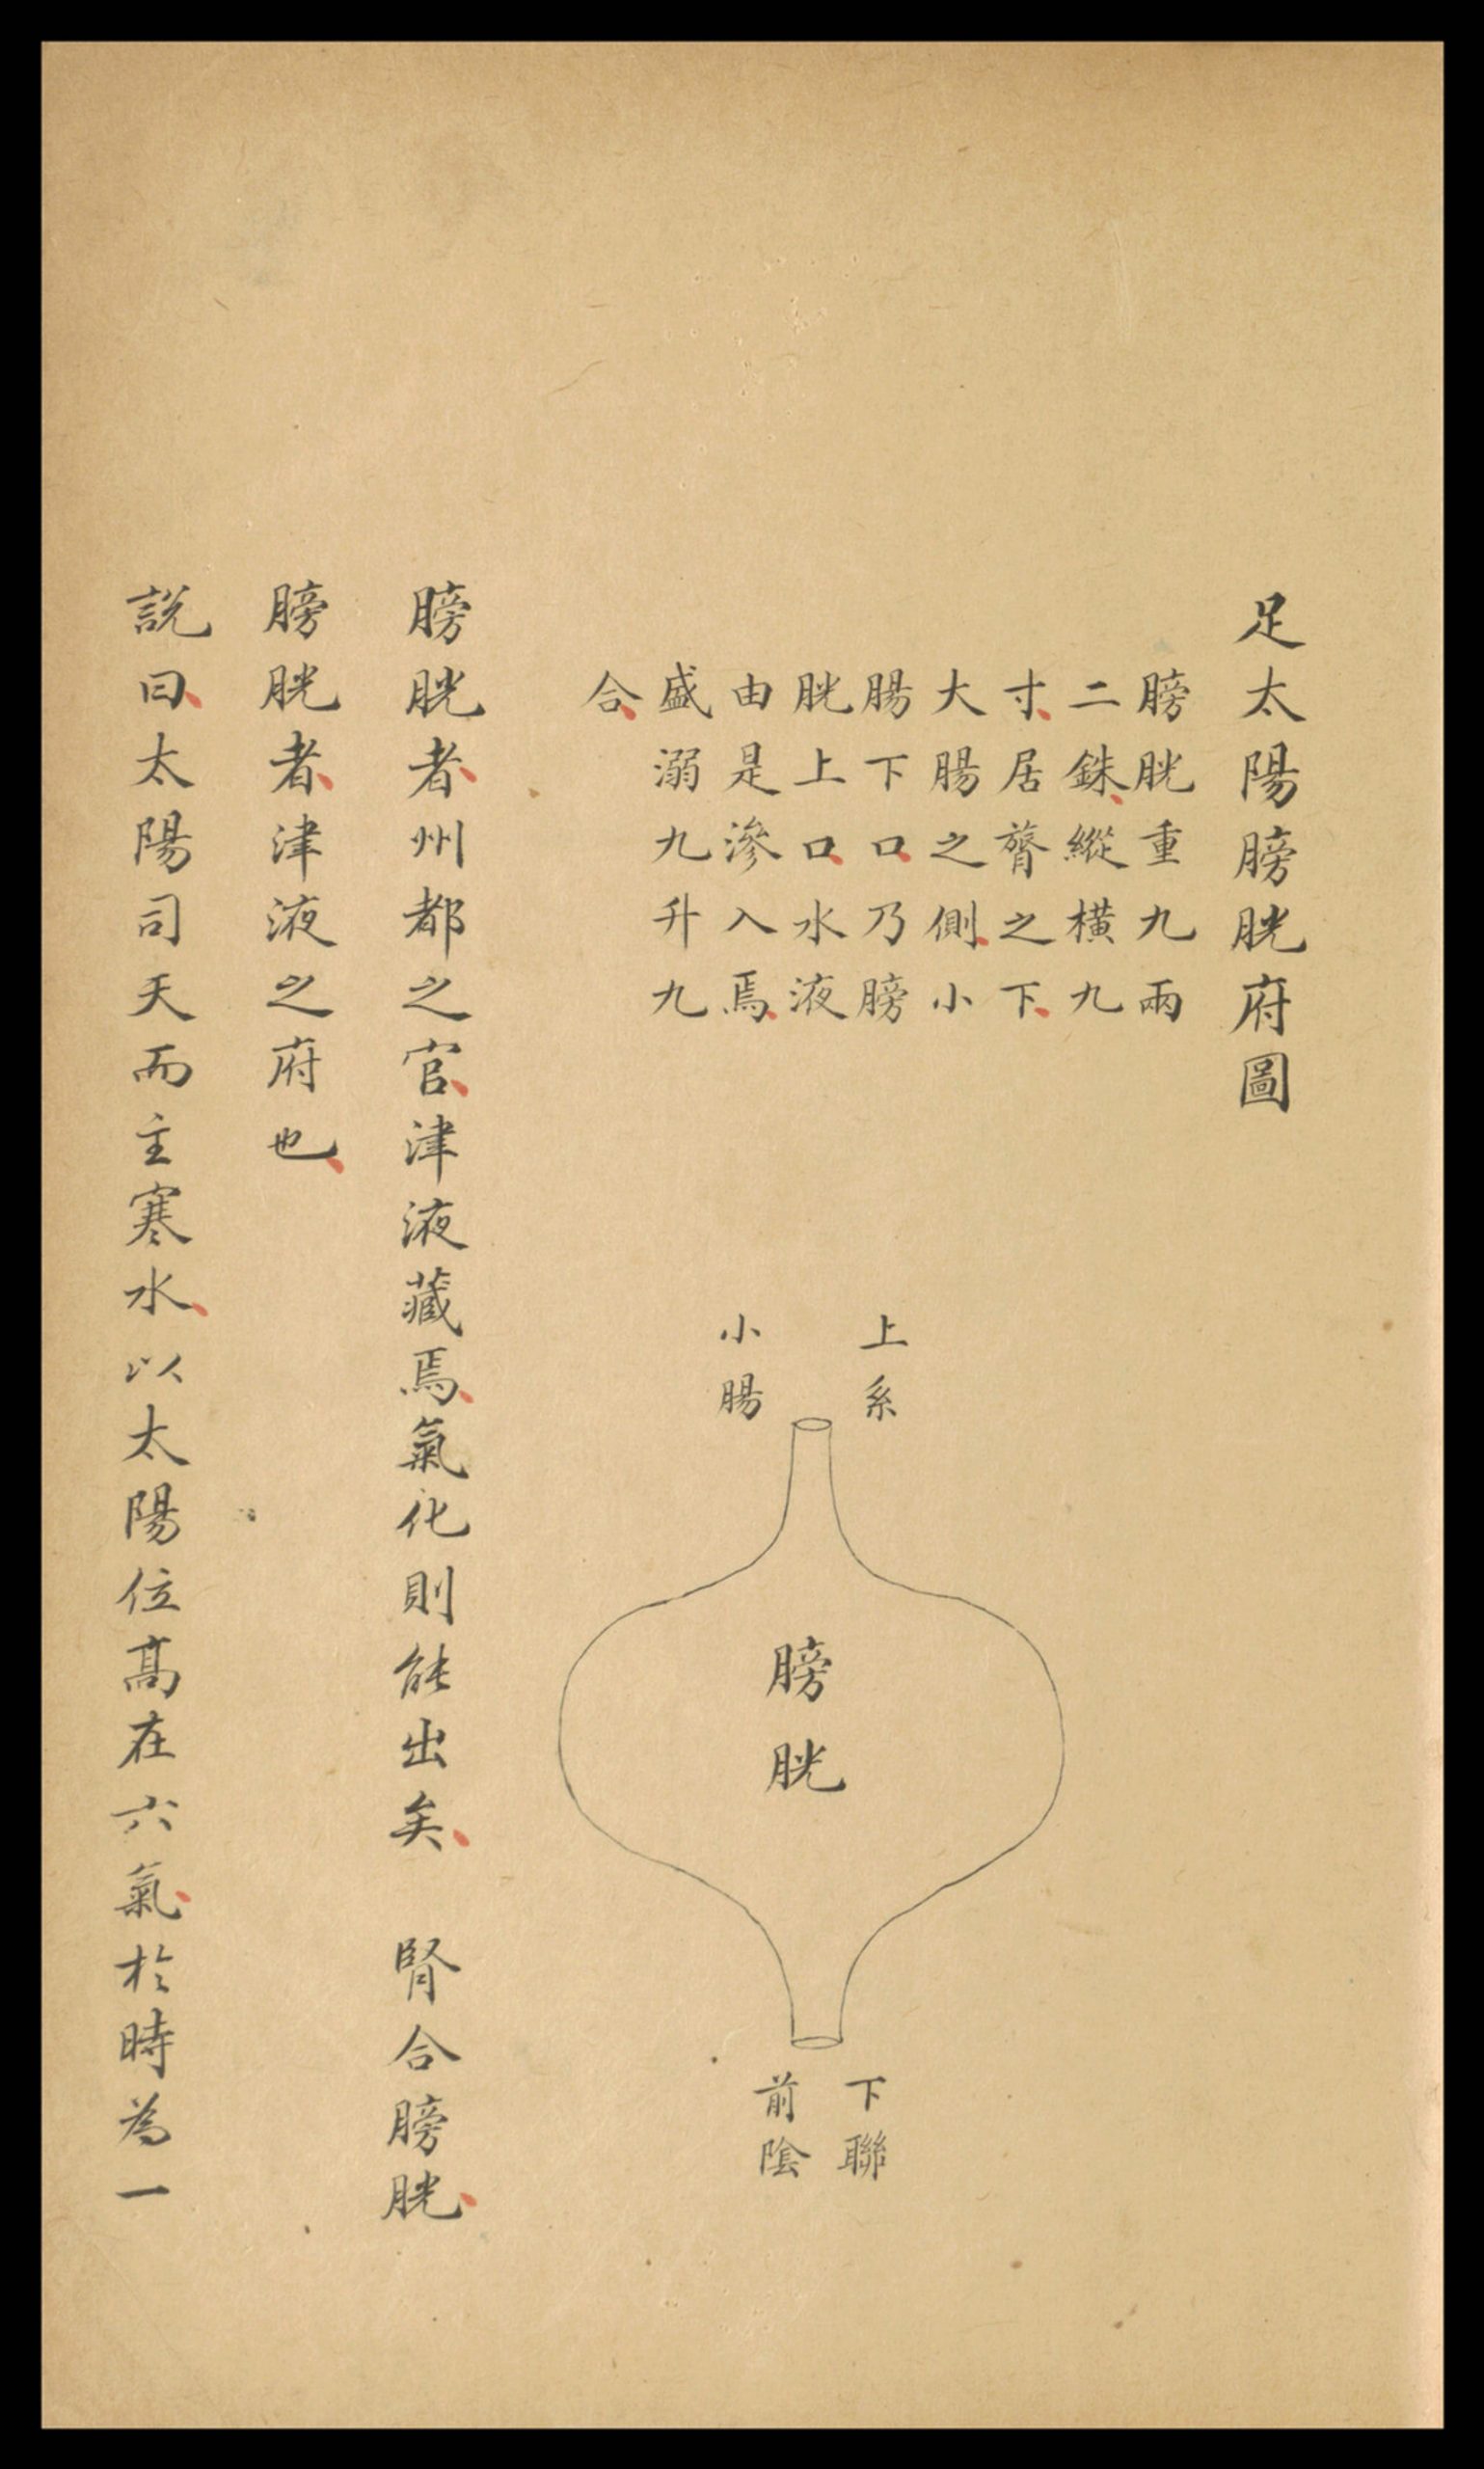 足太陽膀胱府圖
膀胱重九兩
二銖、縱橫九
寸、居膋之下、
大腸之側、小
腸下口、乃膀
胱上口、水液
由是滲入焉、
盛溺九升九
合、
上系
小腸
膀胱
下聯
前陰
膀胱者、州都之官、津液藏焉、氣化則能出矣、 腎合膀胱、
膀胱者、津液之府也、
說曰、太陽司天而主寒水、以太陽位高在六氣、於時為一